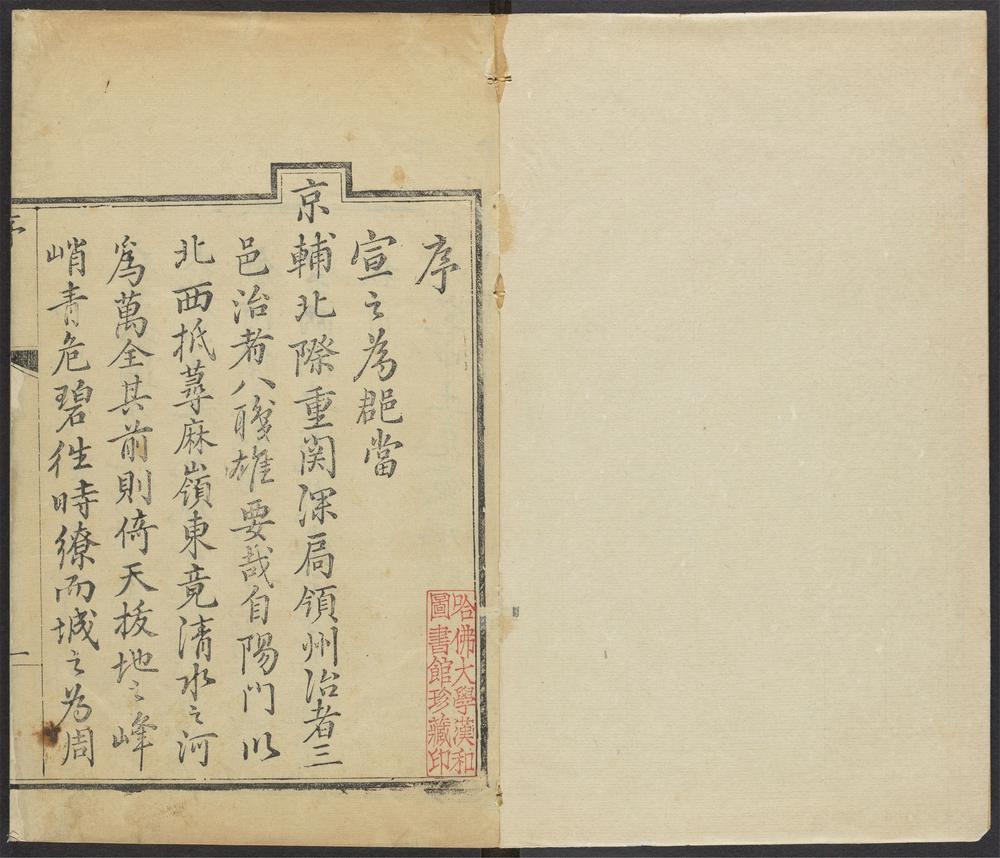 序
宣之為郡當
京輔北際重関深扃領州治者三
邑治者八職雄要哉自陽門以
北西抵蕁麻嶺東竟清水之河
為萬全其前則倚天拔地之峰
峭青危碧徃時繚而城之為周
序
一
哈佛大學漢和
圖書館珍藏印